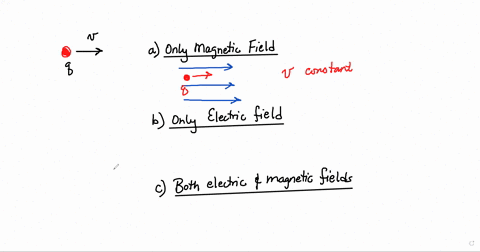 v
q
a) Only Magnetic Field
q
v constant
b) Only Electric field
c) Both electric & magnetic fields